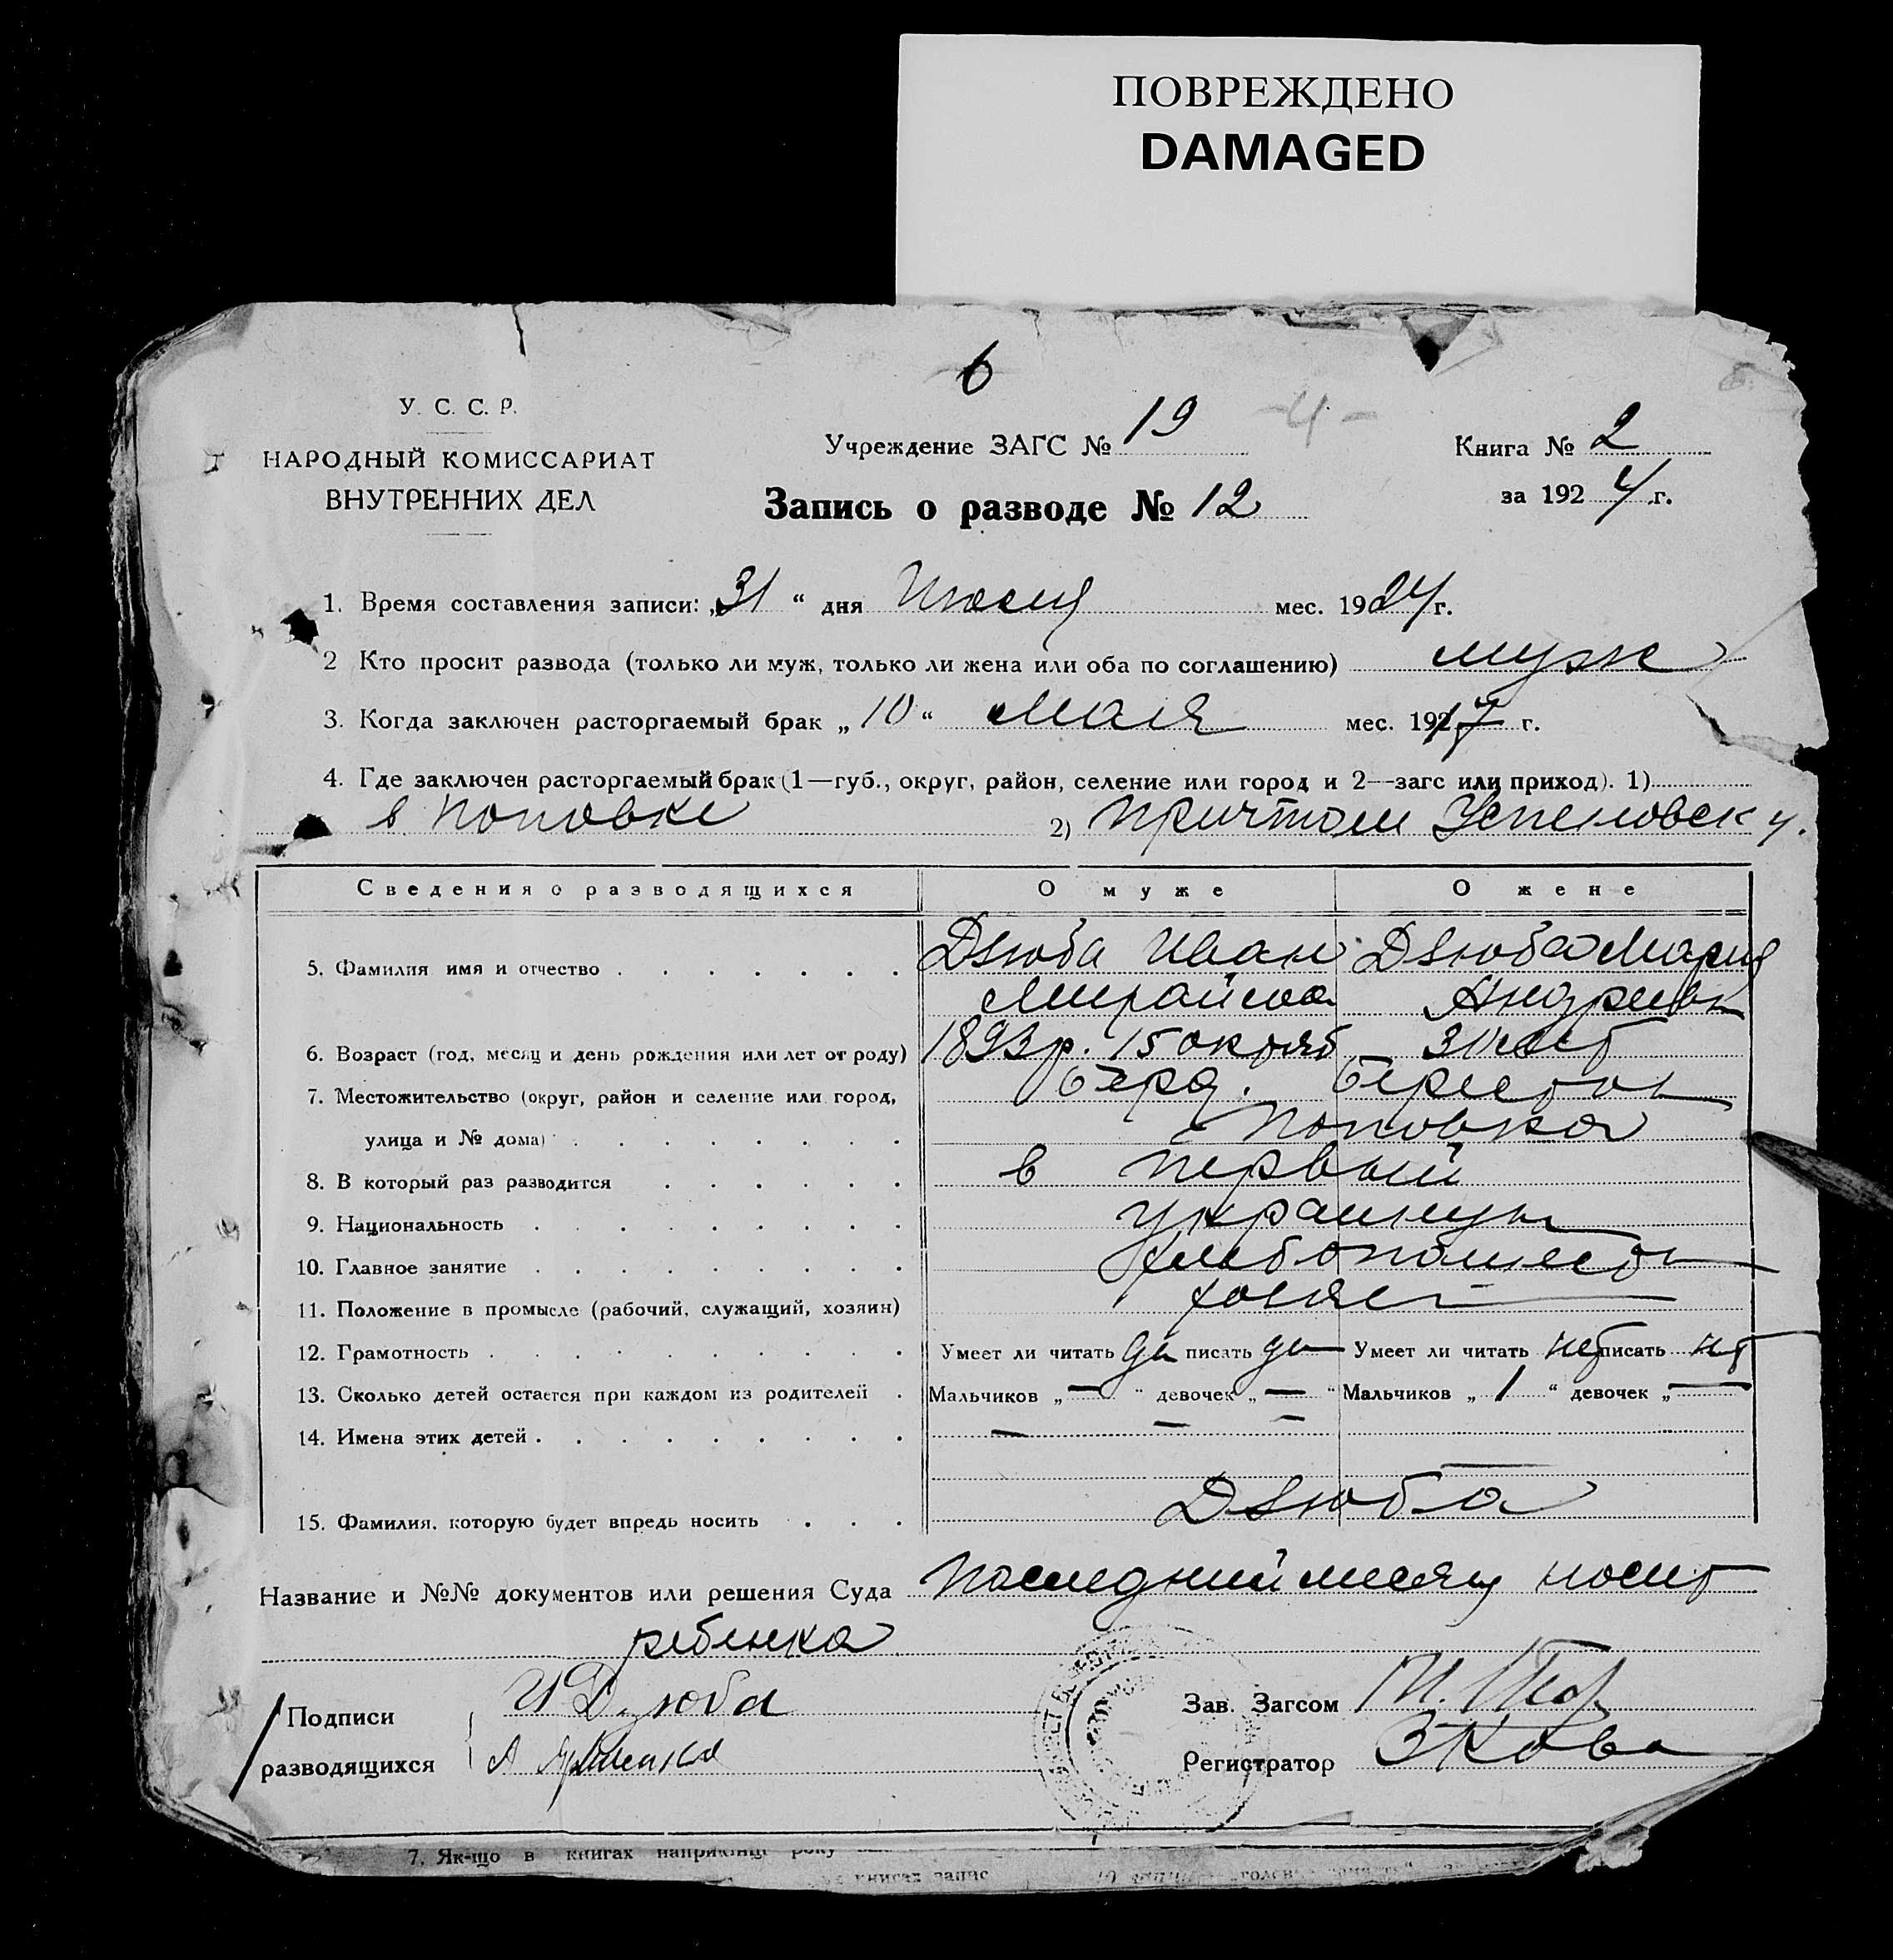 ПОВРЕЖДЕНО
DAMAGED
6
У. С. С. Р.
НАРОДНЫЙ КОМИССАРИАТ
ВНУТРЕННИХ ДЕЛ
Учреждение ЗАГС № 19 -4-
Книга № 2
за 1924 г.
Запись о разводе № 12
1. Время составления записи: „31“ дня Июля мес. 1924 г.
2 Кто просит развода (только ли муж, только ли жена или оба по соглашению) муж
3. Когда заключен расторгаемый брак „10“ Мая мес. 1917 г.
4. Где заключен расторгаемый брак (1—губ., округ, район, селение или город и 2—загс или приход). 1)
в Поповке 2) Причтом Успеновск ц.
Сведения о разводящихся О муже О жене
5. Фамилия имя и отчество Дзюба Иван Дзюба Мария
Андреевн
6. Возраст (год, месяц и день рождения или лет от роду) 1893 р. 15 октяб 30 лет
7. Местожительство (округ, район и селение или город, Берд. Берестов
улица и № дома) Поповка
8. В который раз разводится в первый
9. Национальность украинцы
10. Главное занятие хлебопашеств
11. Положение в промысле (рабочий, служащий, хозяин) хозяев
12. Грамотность Умеет ли читать да писать да Умеет ли читать нет писать нет
13. Сколько детей остается при каждом из родителей Мальчиков „—“ девочек „—“ Мальчиков „1“ девочек „—
14. Имена этих детей — — —
15. Фамилия, которую будет впредь носить Дзюба
Название и №№ документов или решения Суда Последний месяц носит
ребенка
Подписи И Дзюба
разводящихся А
Зав. Загсом
Регистратор
7. Як-що в книгах наприкінці року
книгах запис